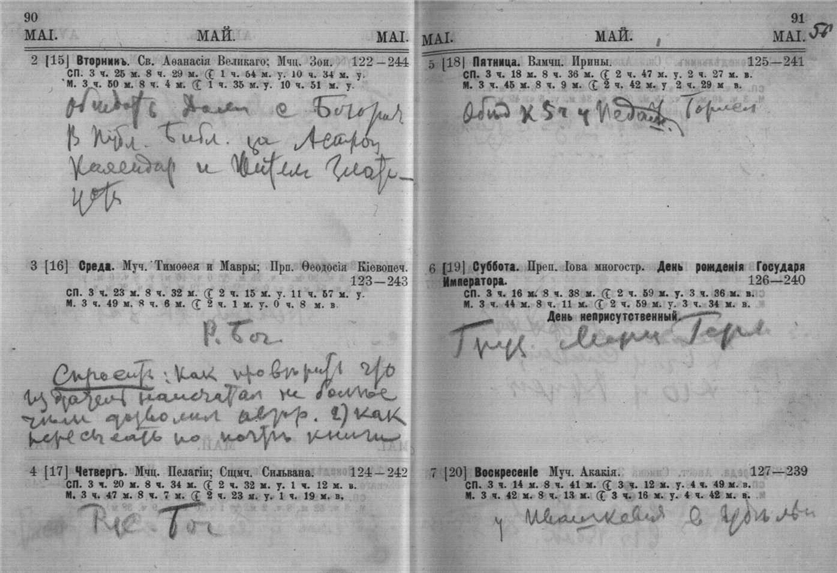 90
МАІ. МАЙ. МАІ.
2 [15] Вторникъ. Св. Аѳанасія Великаго; Мчц. Зои. 122—244
СП. 3 ч. 25 м. 8 ч. 29 м. ☾ 1 ч. 54 м. у. 10 ч. 34 м. у.
М. 3 ч. 50 м. 8 ч. 4 м. ☾ 1 ч. 35 м. у. 10 ч. 51 м. у.
с
В Публ. Библ. за Астрон
Календар и
3 [16] Среда. Муч. Тимоѳея и Мавры; Прп. Ѳеодосія Кіевопеч.
123—243
СП. 3 ч. 23 м. 8 ч. 32 м. ☾ 2 ч. 15 м. у. 11 ч. 57 м. у.
М. 3 ч. 49 м. 8 ч. 6 м. ☾ 2 ч. 1 м. у. 0 ч. 8 м. в.
Р. Бог
Спросить: как проверить что
издатель напечатал не более
чем дозволил автор. 2) как
пересылать по почте книги
4 [17] Четвергъ. Мчц. Пелагіи; Сщмч. Сильвана. 124—242
СП. 3 ч. 20 м. 8 ч. 34 м. ☾ 2 ч. 32 м. у. 1 ч. 12 м. в.
М. 3 ч. 47 м. 8 ч. 7 м. ☾ 2 ч. 23 м. у. 1 ч. 19 м. в.
Рус. Бог
91
МАІ. МАЙ. МАІ.
5 [18] Пятница. Влмчц. Ирины. 125—241
СП. 3 ч. 18 м. 8 ч. 36 м. ☾ 2 ч. 47 м. у. 2 ч. 27 м. в.
М. 3 ч. 45 м. 8 ч. 9 м. ☾ 2 ч. 42 м. у. 2 ч. 29 м. в.
Обед к 5 ч у
6 [19] Суббота. Преп. Іова многостр. День рожденія Государя
Императора. 126—240
СП. 3 ч. 16 м. 8 ч. 38 м. ☾ 2 ч. 59 м. у. 3 ч. 36 м. в.
М. 3 ч. 44 м. 8 ч. 11 м. ☾ 2 ч. 59 м. у. 3 ч. 34 м. в.
День неприсутственный.
7 [20] Воскресеніе Муч. Акакія. 127—239
СП. 3 ч. 14 м. 8 ч. 41 м. ☾ 3 ч. 12 м. у. 4 ч. 49 м. в.
М. 3 ч. 42 м. 8 ч. 13 м. ☾ 3 ч. 16 м. у. 4 ч. 42 м. в.
у